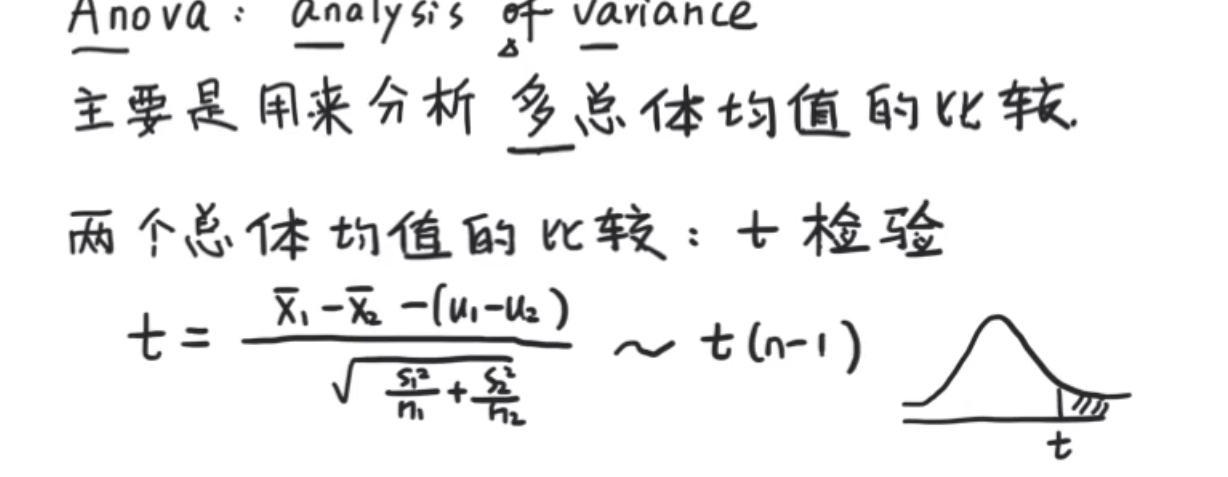 Anova: analysis of variance
主要是用来分析多总体均值的比较.
两个总体均值的比较: t检验
t = (x̄₁ - x̄₂ - (u₁ - u₂)) / √(s₁²/n₁ + s₂²/n₂) ~ t(n-1)
t